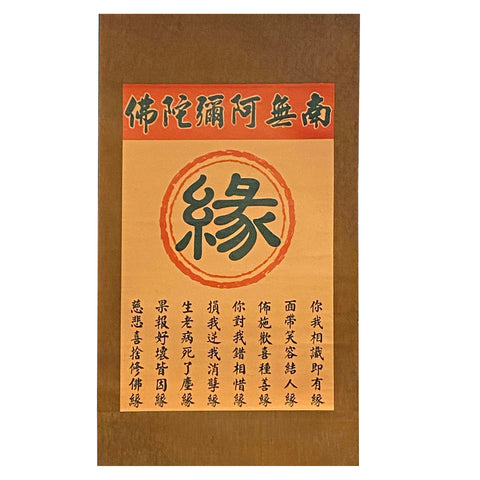 南無阿彌陀佛
緣
你我相識即有緣
面帶笑容結人緣
佈施歡喜種善緣
你對我錯相惜緣
損我逆我消孽緣
生老病死了塵緣
果报好壞皆因緣
慈悲喜捨修佛緣